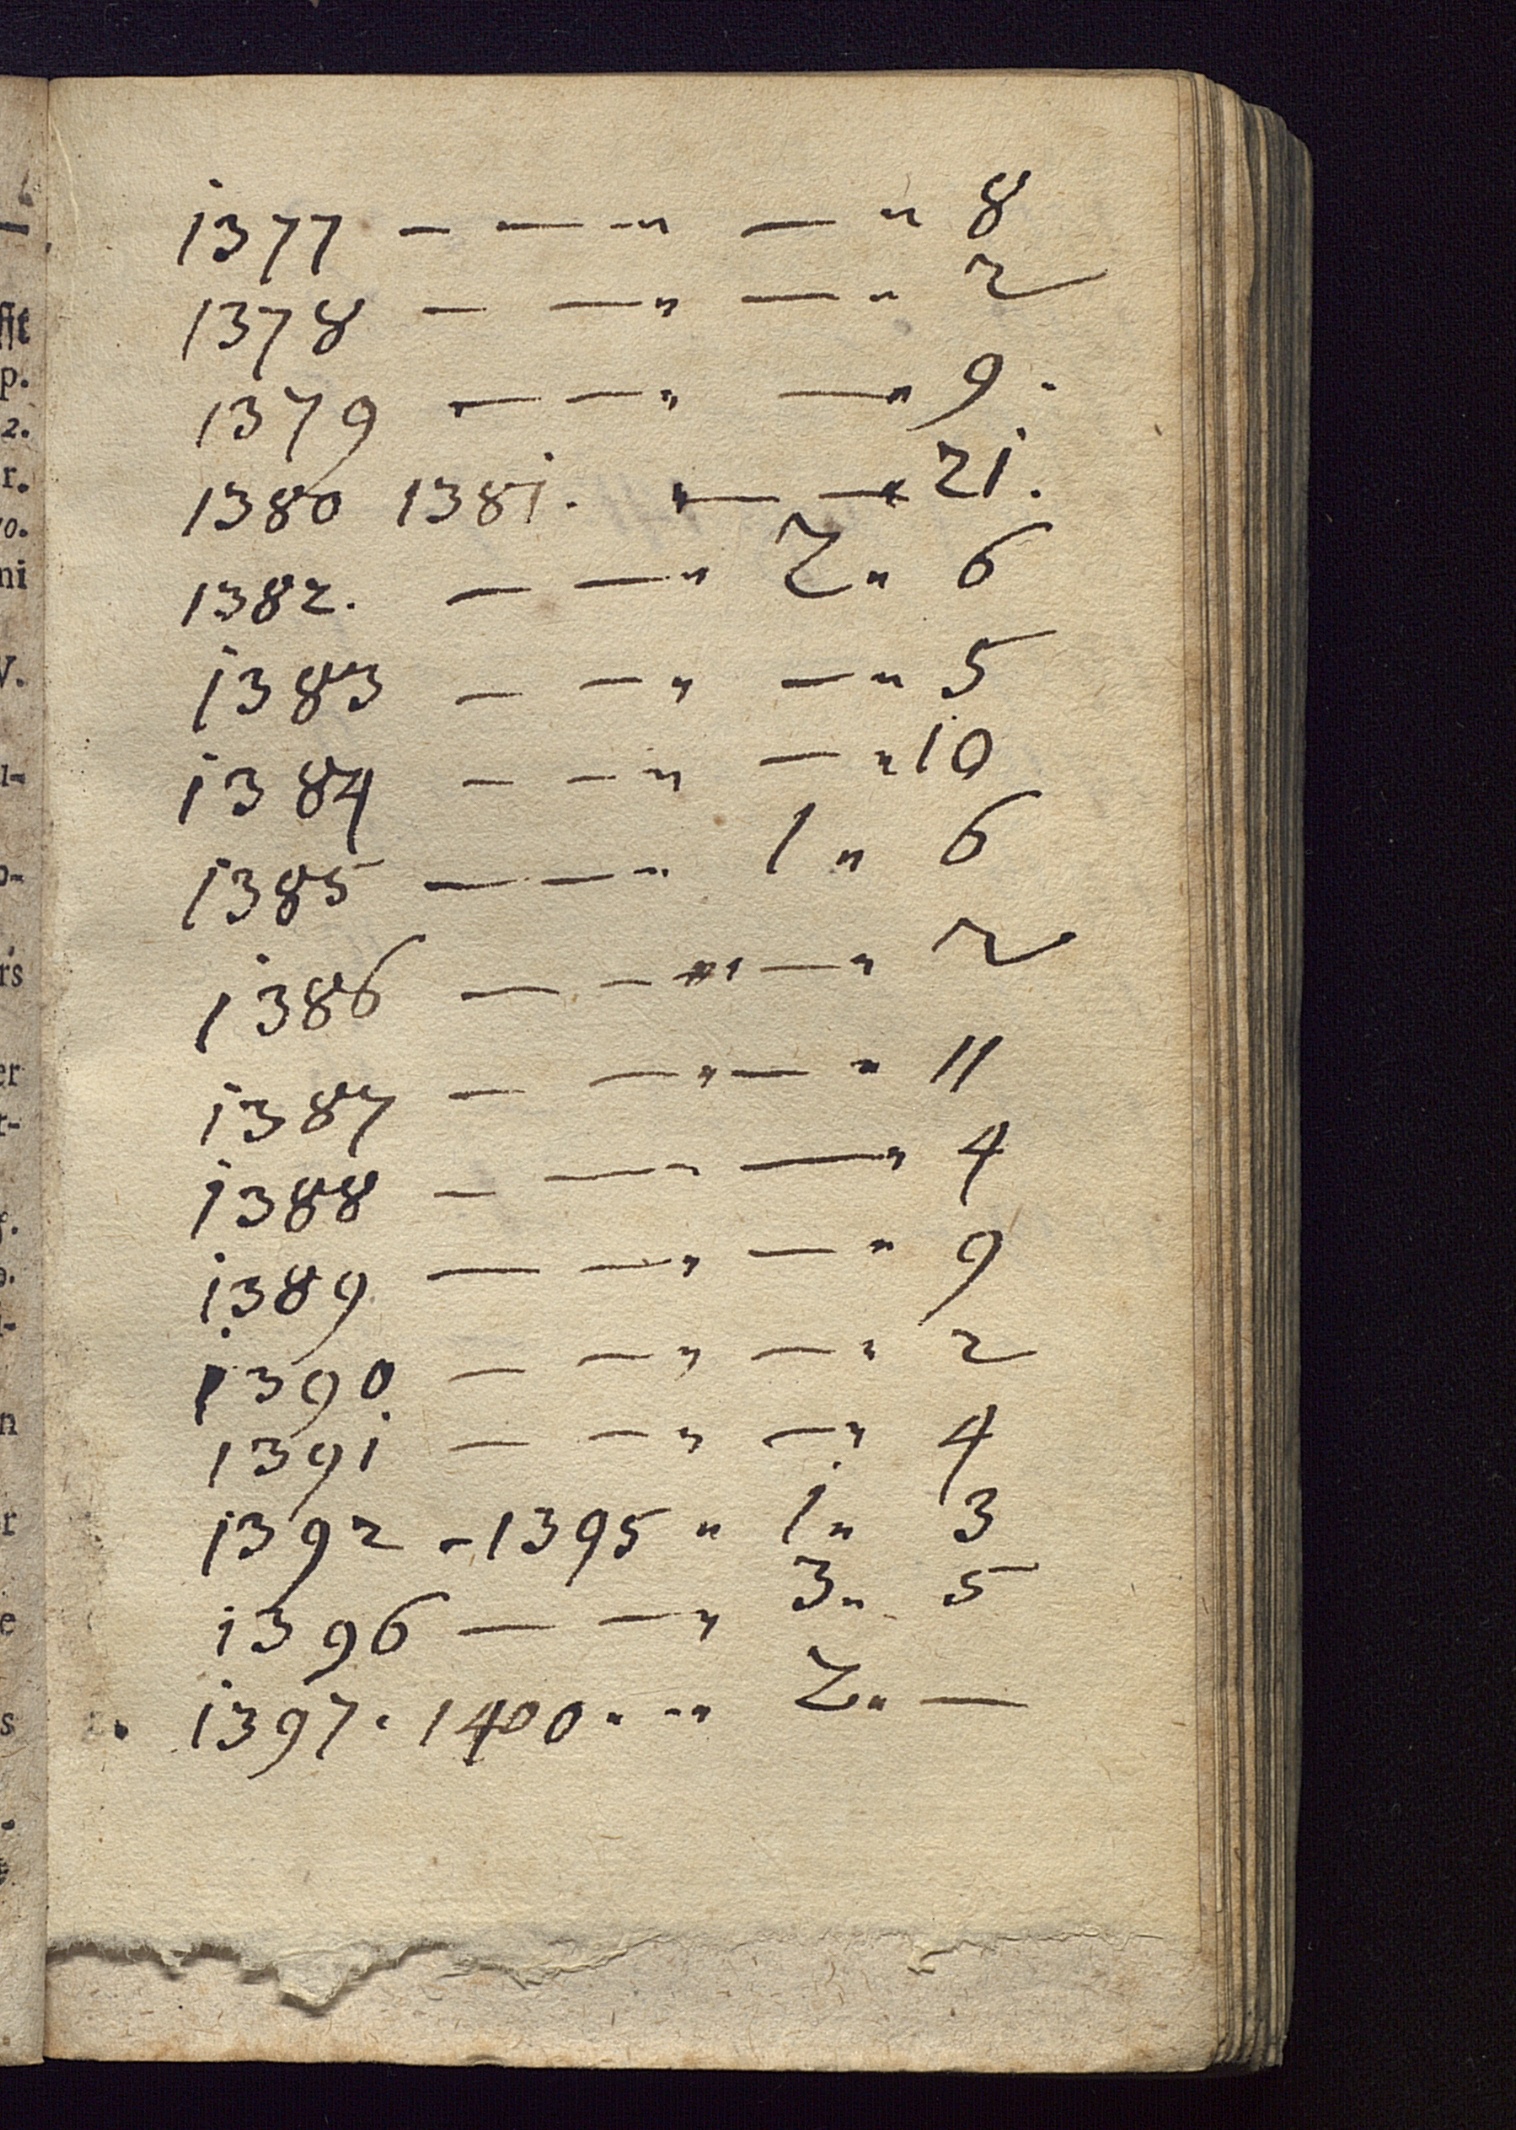 1377 — — — „ — „ 8
1378 — — „ — „ 2
1379 — — „ — „ 9.
1380 1381. „ — — „ 21.
1382. — — „ 2 „ 6
1383 — — „ — „ 5
1384 — — „ — „ 10
1385 — — „ 1 „ 6
1386 — — „ — „ 2
1387 — — „ — „ 11
1388 — — „ — „ 4
1389 — — „ — „ 9
1390 — — „ — „ 2
1391 — — „ — „ 4
1392 - 1395 „ 1 „ 3
1396 — — „ 3 „ 5
1397. 1400. „ „ 2 „ —